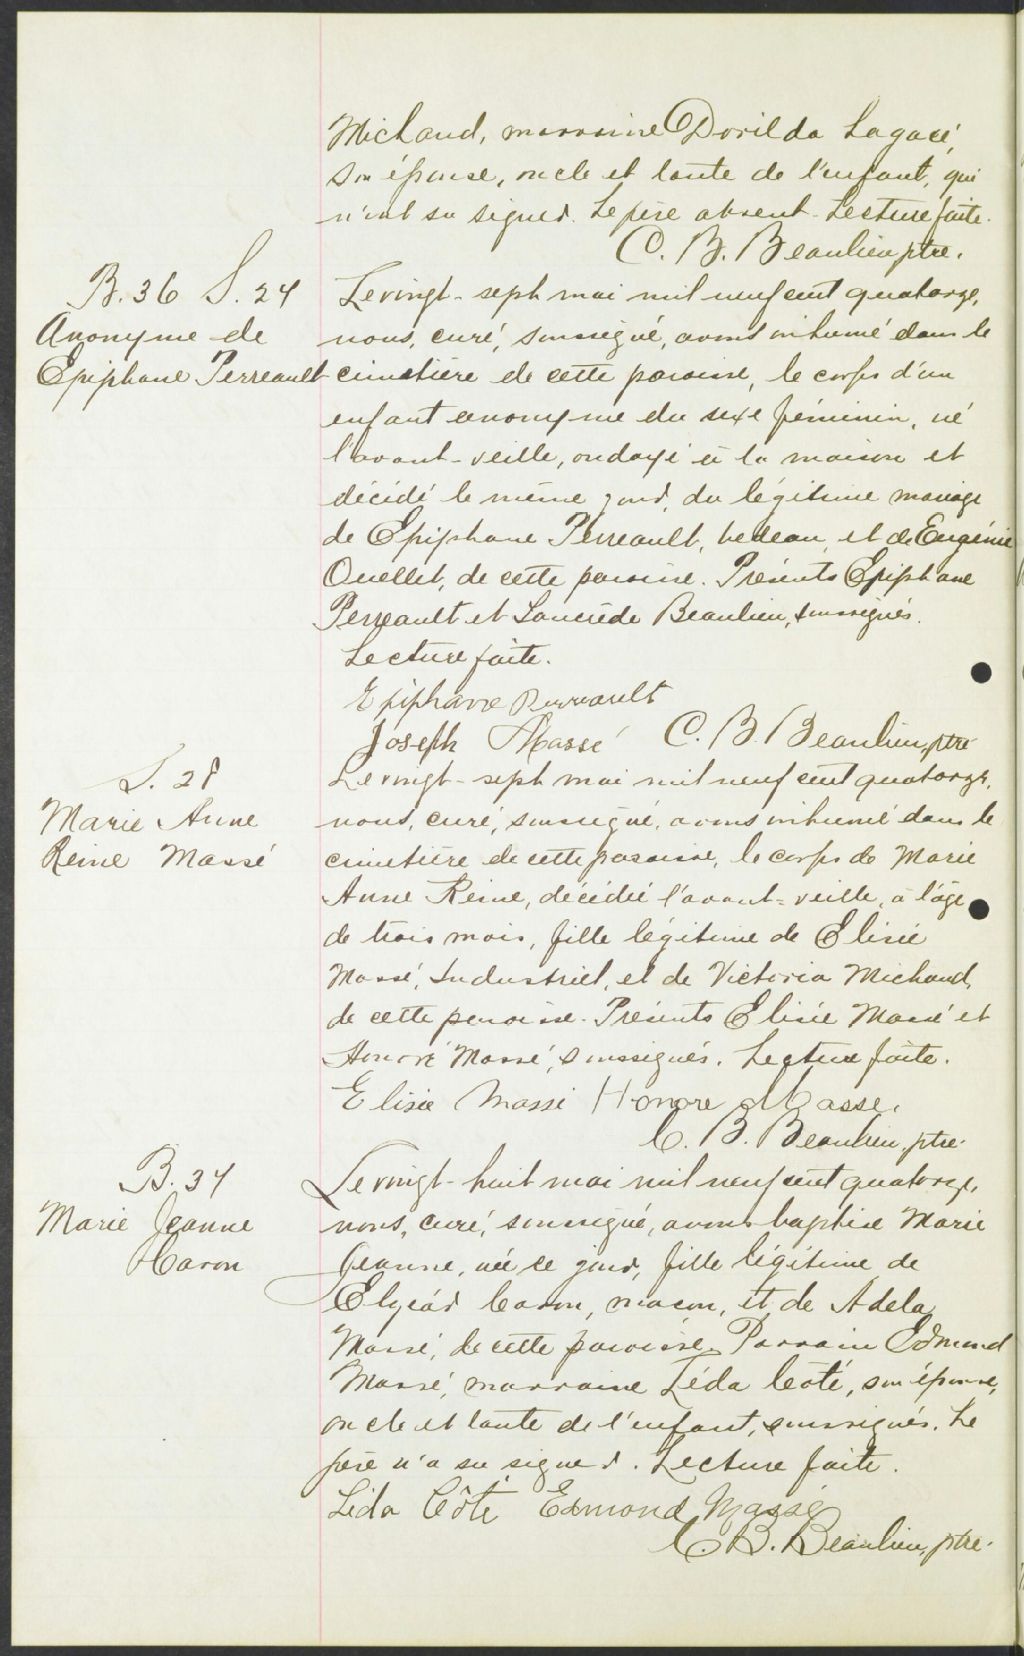 Michaud, marraine Dorilda Lagacé,
son épouse, oncle et tante de l'enfant, qui
n'ont su signer. Le père absent. Lecture faite.
C. B. Beaulieu, ptre.
B. 36 S. 27
Anonyme de
Epiphane Perreault
Le vingt-sept mai mil neuf cent quatorze,
nous, curé, soussigné, avons inhumé dans le
cimetière de cette paroisse, le corps d'un
enfant anonyme du sexe féminin, né
l'avant-veille, ondoyé à la maison et
décédé le même jour, du légitime mariage
de Epiphane Perreault, bedeau, et de Eugénie
Ouellet, de cette paroisse. Présents Epiphane
Perreault et Beaulieu, soussignés.
Lecture faite.
Epiphane Perreault
Joseph Massé C. B. Beaulieu, ptre
S. 28
Marie Anne
Reine Massé
Le vingt-sept mai mil neuf cent quatorze,
nous, curé, soussigné, avons inhumé dans le
cimetière de cette paroisse, le corps de Marie
Anne Reine, décédée l'avant-veille, à l'âge
de trois mois, fille légitime de Elisée
Massé, Industriel, et de Victoria Michaud,
de cette paroisse. Présents Elisée Massé et
Honoré Massé, soussignés. Lecture faite.
Elisée Massé Honore Masse.
C. B. Beaulieu, ptre.
B. 37
Marie Jeanne
Caron
Le vingt-huit mai mil neuf cent quatorze,
nous, curé, soussigné, avons baptisé Marie
Jeanne, née ce jour, fille légitime de
Elzéar Caron, maçon, et de Adela
Massé, de cette paroisse. Parrain Edmond
Massé, marraine Léda Côté, son épouse,
oncle et tante de l'enfant, soussignés. Le
père n'a su signer. Lecture faite.
Léda Côté Edmond Massé
C. B. Beaulieu, ptre.